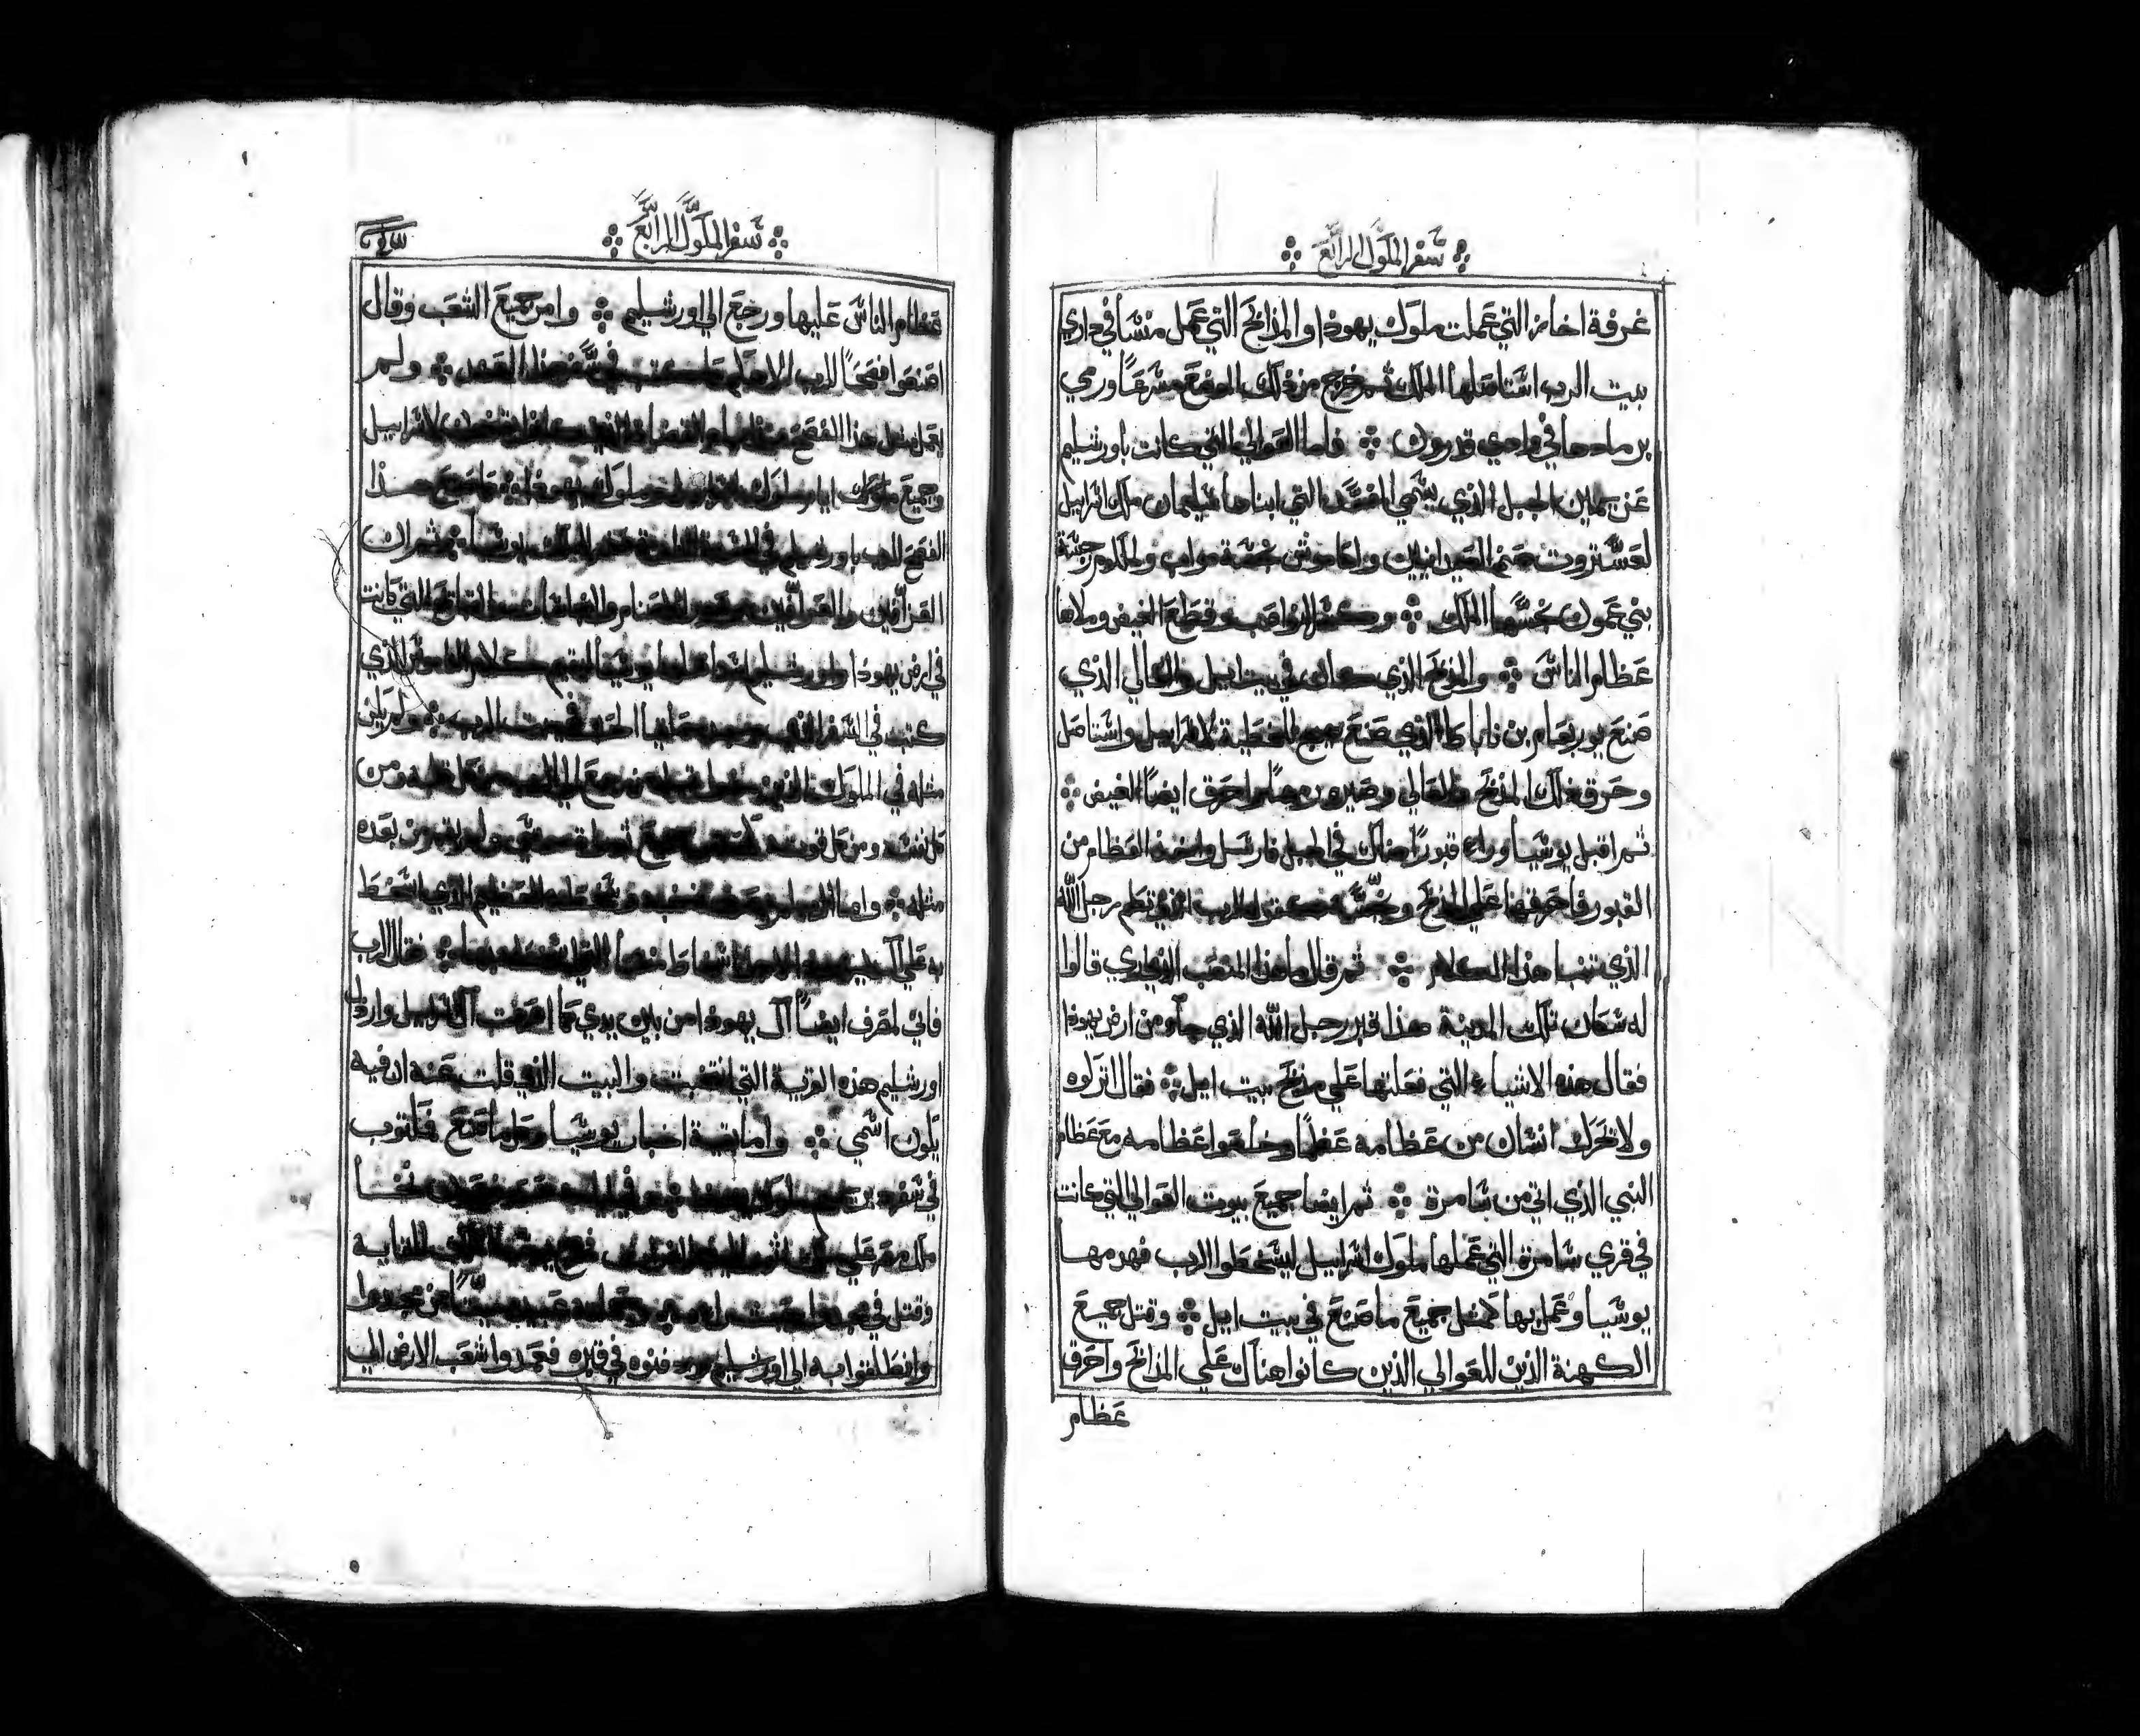 سفر الملوك الرابع
غرفة احاز التي عملت ملوك يهوذا والمذابح التي عمل منسا في داري
بيت الرب استاصلها الملك ثم خرج من ذلك الموضع مسرعًا ورمي
برمادها في وادي قدرون فاما العوالي التي كانت باورشليم
عن يمين الجبل الذي يسمي المفسد التي ابناها سليمان ملك اسراييل
لعستروت صنم الصيدانيين ولكاموش خشة مواب ولملكوم رجسة
بني عمون نجسها الملك وكسر النواصب وقطع الغيض وملاها
عظام الناس والمذبح الذي كان في بيت ايل والعالي الذي
صنع يوربعام بن ناباط الذي صنع الخطية لاسراييل واستاصل
وحرق ذلك المذبح والعالي وصيره رملًا واحرق ايضًا الغيض
ثم اقبل يوشيا وراء قبورًا هناك في الجبل فارسل واخذ العظام من
القبور فاحرقها علي المذبح ونجسه كقول الرب الذي تكلم رجل الله
الذي تنبا هذا الكلام ثم قال ما هذا المنصب الذي اري قالوا
له سكان تلك المدينة هذا قبر رجل الله الذي جاء من ارض يهوذا
فقال هذه الاشياء التي فعلتها علي مذبح بيت ايل فقال اتركوه
ولا تحرك انسان من عظامه عظمًا وخلصوا عظامه مع عظام
النبي الذي اتي من سامرة ثم ايضا جميع بيوت العوالي التي كانت
في قري سامرة التي عملها ملوك اسراييل ليسخطوا الرب فهدمها
يوشيا وعمل بها كمثل جميع ما صنع في بيت ايل وقتل جميع
الكهنة الذين للعوالي الذين كانوا هناك علي المذابح واحرق
عظام
سفر الملوك الرابع
عظام الناس عليها ورجع الي اورشليم وامر جميع الشعب وقال
اصنعوا فصحًا للرب الاهكم كما كتب في سفر هذا العهد ولم
يعمل مثل هذا الفصح منذ ايام القضاة الذين كانوا يقضون لاسراييل
وجميع ملوك ايام ملوك اسراييل وملوك يهوذا فاصنع هذا
الفصح للرب باورشليم في السنة الثامنة عشر للملك يوشيا ثم ان
القزافين والعرافين والاصنام والنجاسات التي كانت
في ارض يهوذا واورشليم استاصلها يوشيا ليقيم كلام الناموس الذي
كتب في السفر الذي وجد حلقيا الحبر في بيت الرب ولم يكن
مثله في الملوك الذين كانوا قبله من رجع الي الرب من كل قلبه ومن
كل نفسه ومن كل قوته كمثل جميع توراة موسي ولم يقم من بعده
مثله واما الرب لم يرجع من غضبه وسخطه العظيم الذي اسخط
به علي آل يهوذا لاجل اسخاط منسا التي اسخطه بها فقال الرب
فاني لصرف ايضًا آل يهوذا من بين يدي كما صرفت آل اسراييل واردل
اورشليم هذه القرية التي انتخبت والبيت الذي قلت عنه ان فيه
يكون اسمي واما بقية اخبار يوشيا وكل ما صنع مكتوب
في سفر ملوك يهوذا نخا
ملك مصر علي ملك اثور الي نهر الفرات خرج يوشيا الملك للقايه
وقتل في مجدوا وحمله عبيده ميتًا من مجدوا
وانطلقوا به الي اورشليم ودفنوه في قبره فعمدوا شعب الارض الي